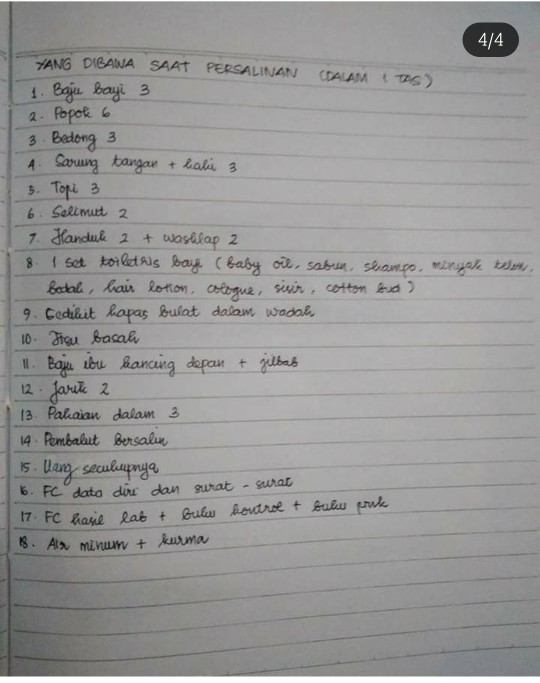 4/4
YANG DIBAWA SAAT PERSALINAN (DALAM 1 TAS)
1. Baju bayi 3
2. Popok 6
3. Bedong 3
4. Sarung tangan + kaki 3
5. Topi 3
6. Selimut 2
7. Handuk 2 + washlap 2
8. 1 set toiletris bayi (baby oil, sabun, shampo, minyak telon,
bedak, hair lotion, cologne, sisir, cotton bud)
9. Sedikit kapas bulat dalam wadah
10. Tisu basah
11. Baju ibu kancing depan + jilbab
12. Jarik 2
13. Pakaian dalam 3
14. Pembalut bersalin
15. Uang secukupnya
16. FC data diri dan surat-surat
17. FC hasil lab + buku kontrol + buku pink
18. Air minum + kurma